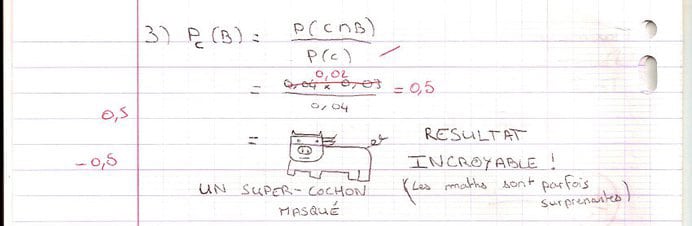 3) Pc(B) = P(C∩B)
P(C)
0,02
= 0,04 x 0,03 = 0,5
0,04
0,5
-0,5
= RESULTAT
INCROYABLE !
UN SUPER-COCHON
MASQUÉ
(Les maths sont parfois
surprenantes)